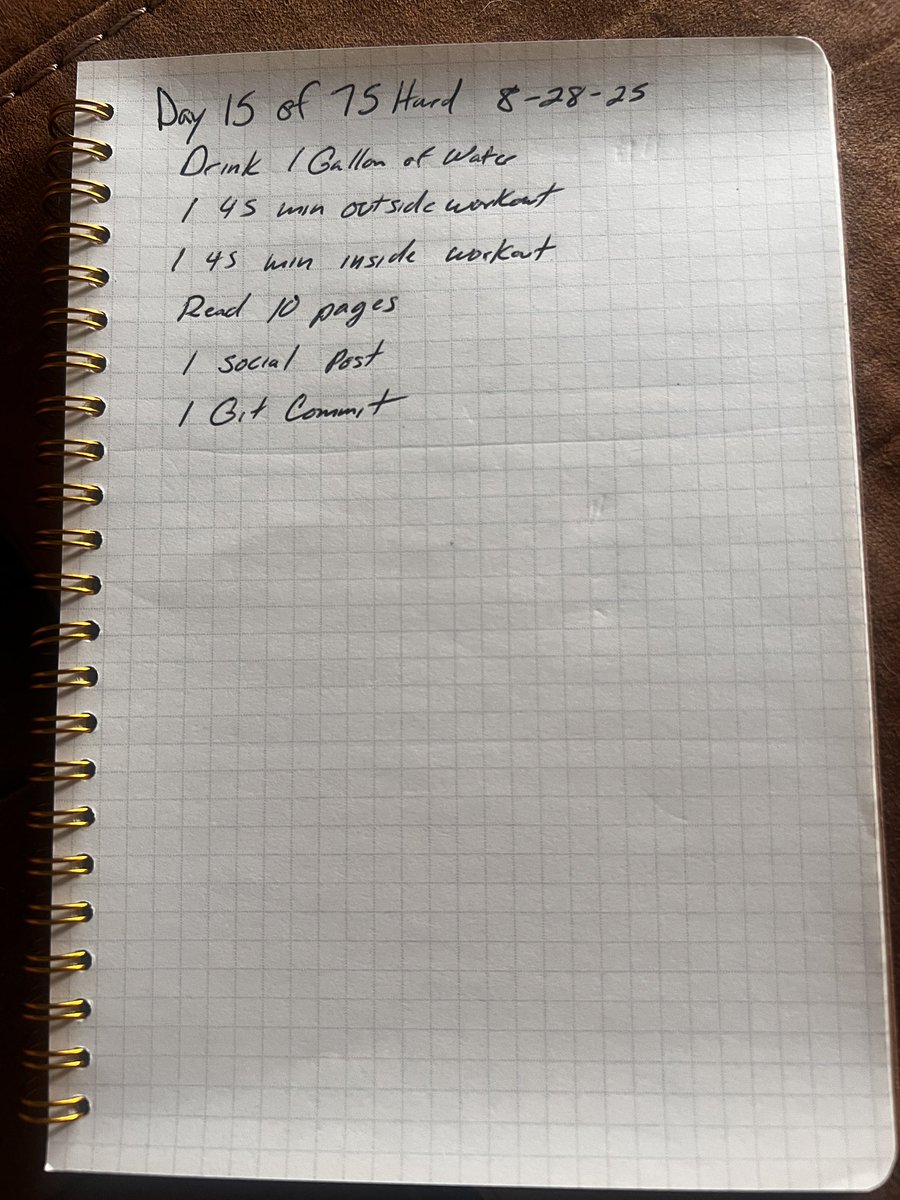 Day 15 of 75 Hard 8-28-25
Drink 1 Gallon of Water
1 45 min outside workout
1 45 min inside workout
Read 10 pages
1 Social Post
1 Git Commit